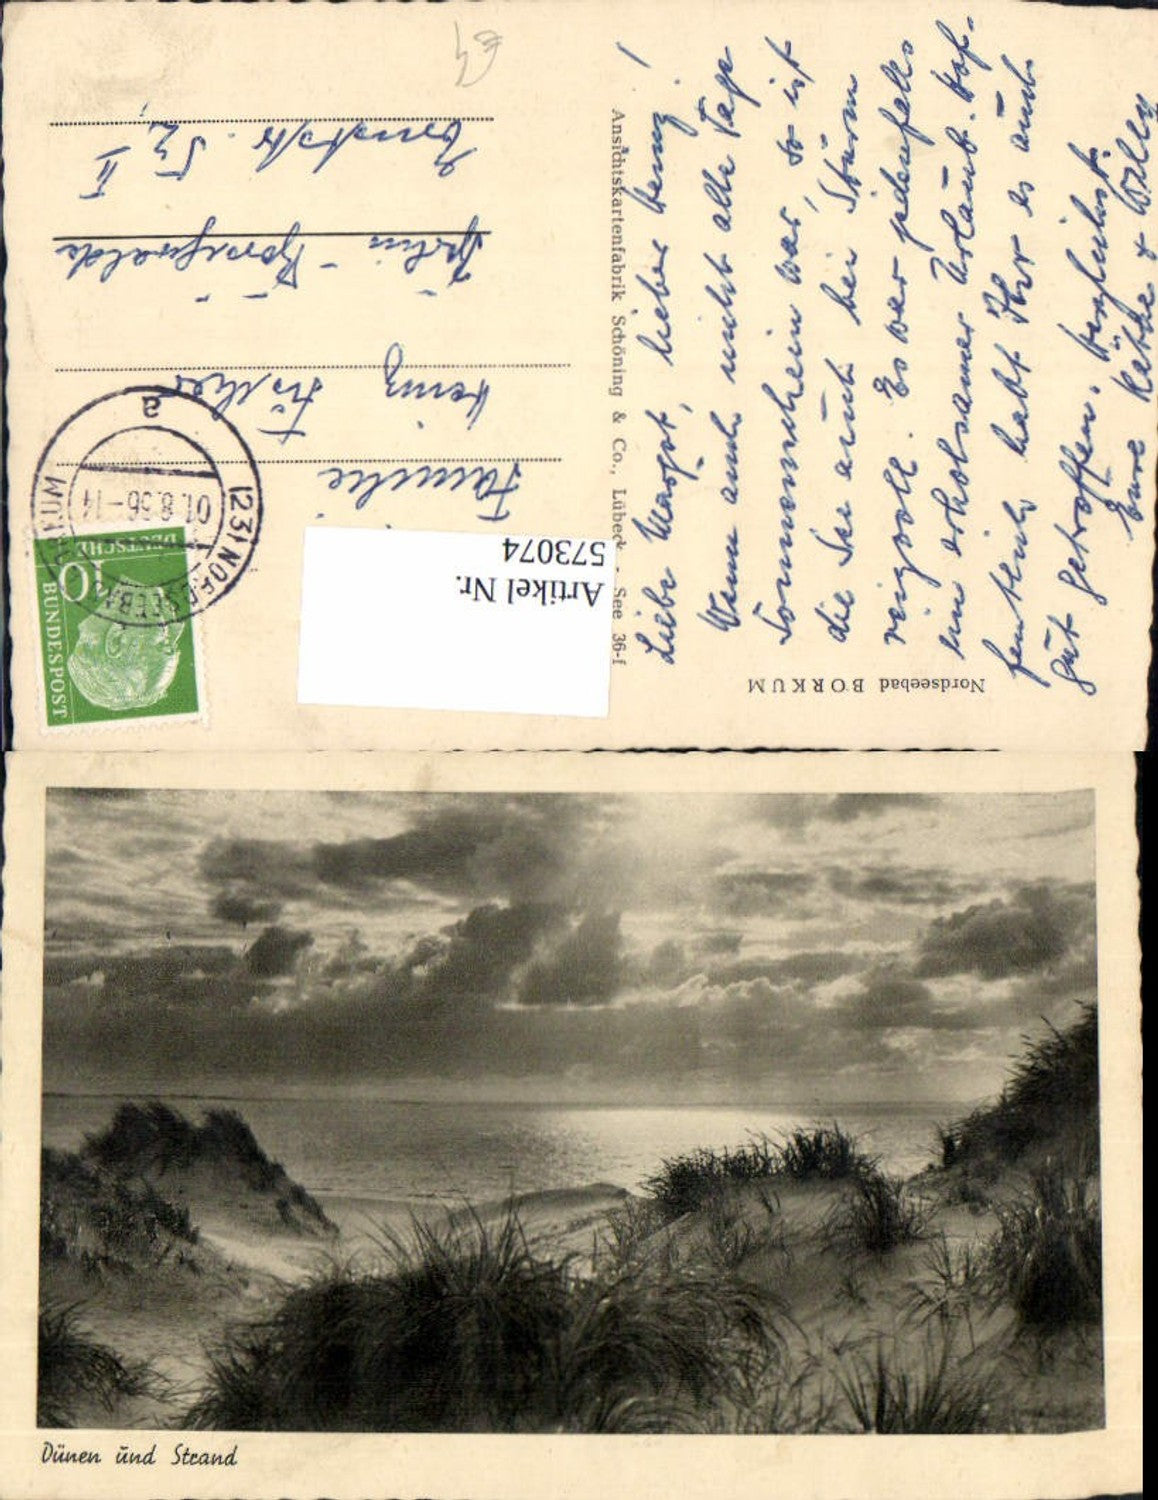 Liebe Margot, lieber Heinz!
Wenn auch nicht alle Tage
Sonnenschein war, so ist
die See auch bei Sturm
reizvoll. Es war jedenfalls
ein erholsamer Urlaub. Hof-
fentlich habt Ihr es auch
gut getroffen. Herzlichst
Eure Käthe & Willy
Nordseebad BORKUM
Ansichtskartenfabrik Schöning & Co., Lübeck - See 36-f
Artikel Nr.
573074
DEUTSCHE
BUNDESPOST
10
(23) NORDSEEBAD BORKUM
01.8.56-14
a
Familie
Heinz
Berlin
II
Dünen und Strand